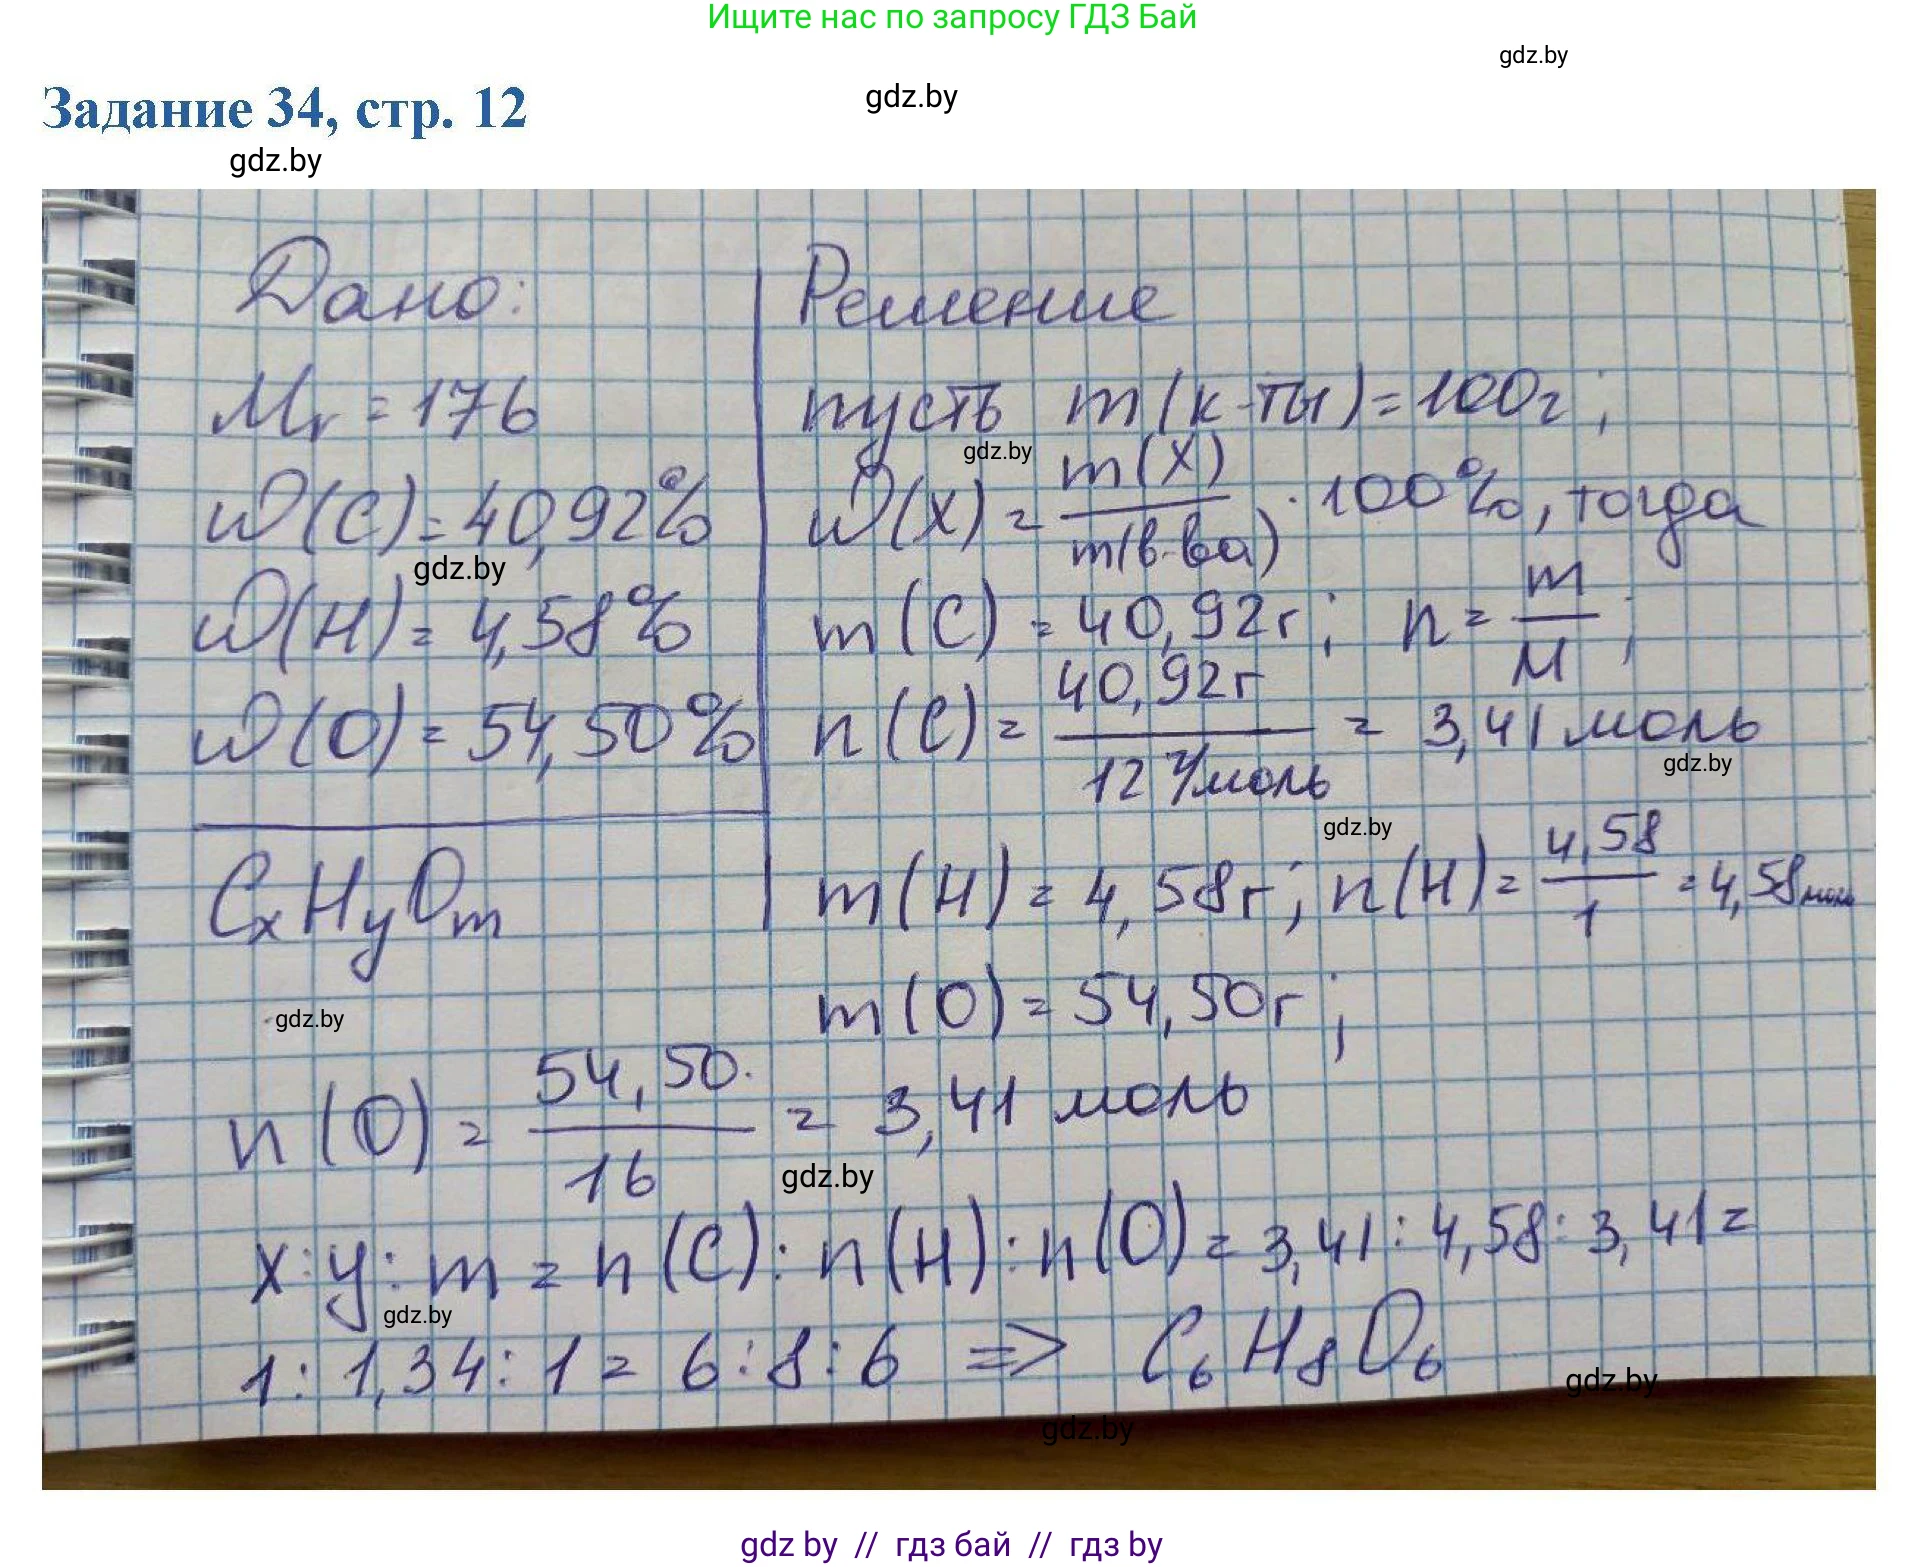 Ищите нас по запросу ГДЗ Бай
gdz.by
Задание 34, стр. 12
gdz.by
gdz.by
Дано:
Mr = 176
W(C) = 40,92%
gdz.by
W(H) = 4,58%
W(O) = 54,50%
CxHyOm
Решение
пусть m(к-ты) = 100г;
gdz.by
W(X) = m(X)/m(в-ва) · 100%, тогда
m(C) = 40,92г; n = m/M;
n(C) = 40,92г/12 г/моль = 3,41 моль
gdz.by
gdz.by
m(H) = 4,58г; n(H) = 4,58/1 = 4,58 моль
m(O) = 54,50г;
gdz.by
n(O) = 54,50/16 = 3,41 моль
gdz.by
x:y:m = n(C):n(H):n(O) = 3,41:4,58:3,41=
gdz.by
1:1,34:1 = 6:8:6 => C6H8O6
gdz.by
gdz.by
gdz by // гдз бай // гдз by